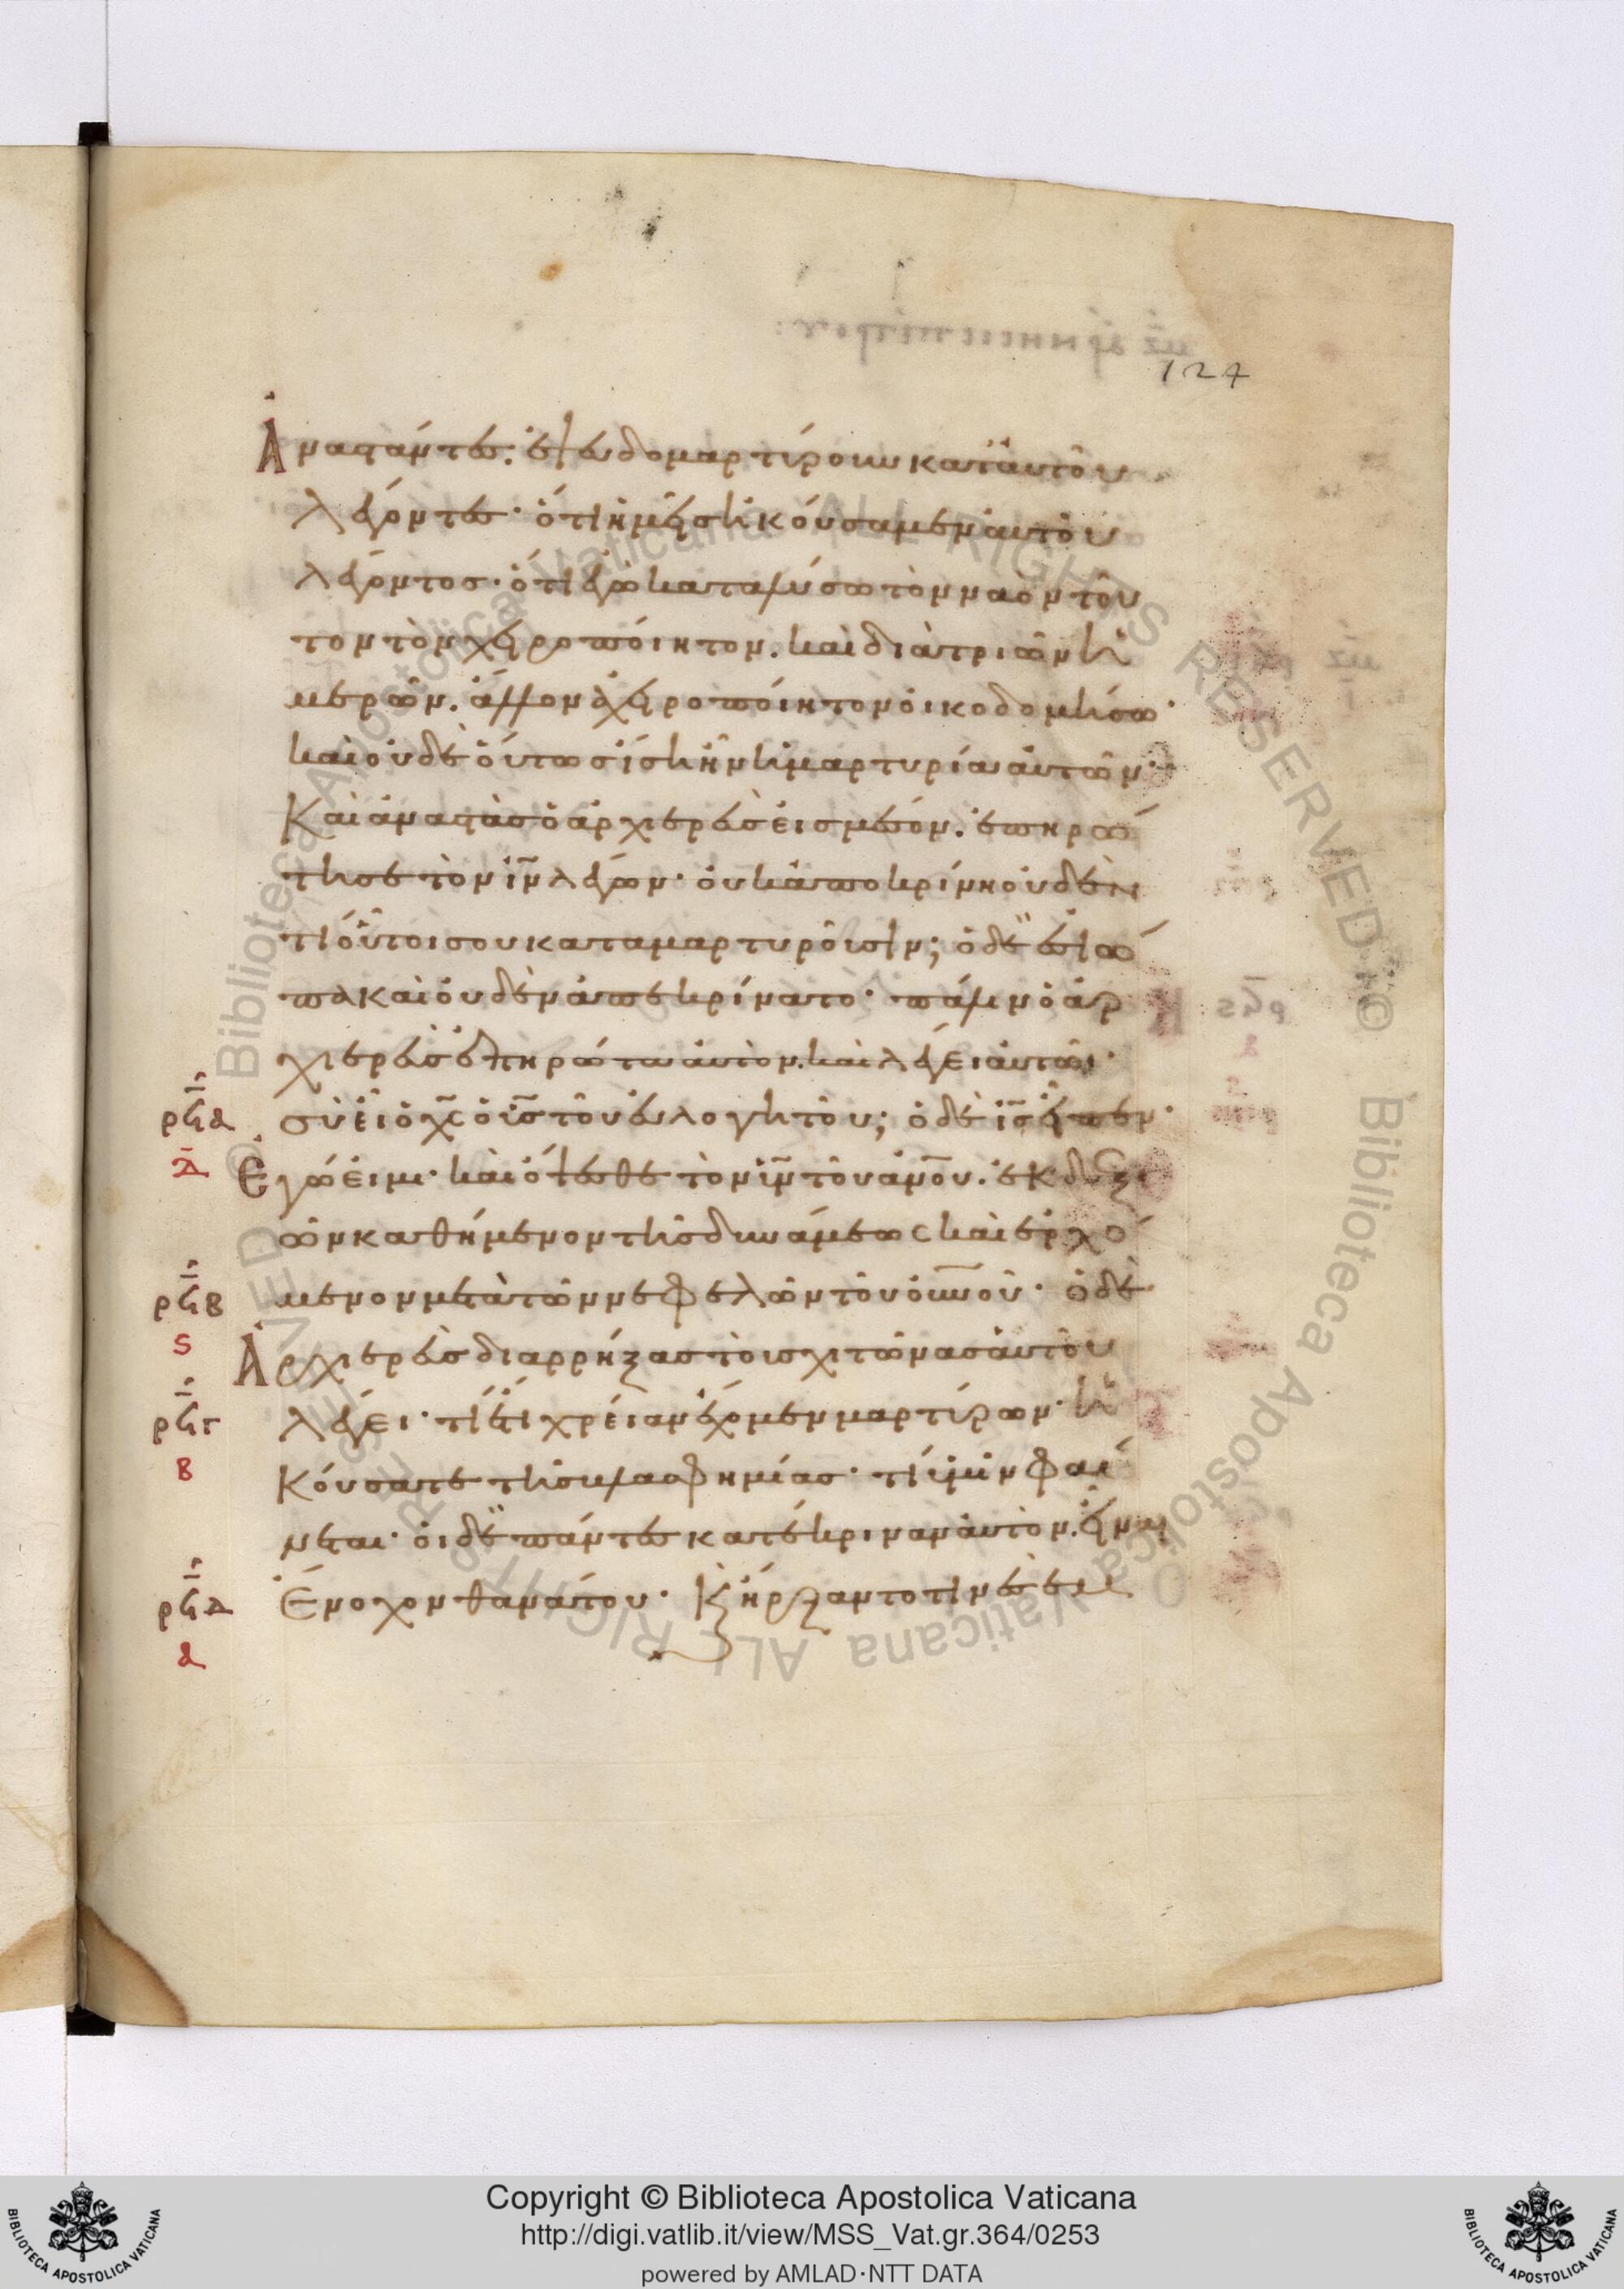 124
Ἀναστάντες· ἐψευδομαρτύρουν κατ' αὐτοῦ
λέγοντες· ὅτι ἡμεῖς ἠκούσαμεν αὐτοῦ
λέγοντος· ὅτι ἐγὼ καταλύσω τὸν ναὸν τοῦ
τον τὸν χειροποίητον. καὶ διὰ τριῶν ἡ
μερῶν. ἄλλον ἀχειροποίητον οἰκοδομήσω·
καὶ οὐδὲ οὕτως ἴση ἦν ἡ μαρτυρία αὐτῶν·
Καὶ ἀναστὰς ὁ ἀρχιερεὺς εἰς μέσον. ἐπηρώ
τησε τὸν ιν λέγων· οὐκ ἀποκρίνη οὐδὲν
τί οὗτοί σου καταμαρτυροῦσιν; ὁ δὲ ἐσιώ
πα καὶ οὐδὲν ἀπεκρίνατο· πάλιν ὁ ἀρ
χιερεὺς ἐπηρώτα αὐτὸν. καὶ λέγει αὐτῶι·
ρϟα σὺ εἶ ὁ χς ὁ υς τοῦ εὐλογητοῦ; ὁ δὲ ις εἶπεν·
Δ Ἐγώ εἰμι· καὶ ὄψεσθε τὸν υν τοῦ ανου. ἐκ δεξι
ῶν καθήμενον τῆς δυνάμεως καὶ ἐρχό
ρϟβ μενον μετὰ τῶν νεφελῶν τοῦ ουνου· ὁ δὲ
ϛ Ἀρχιερεὺς διαρρήξας τοὺς χιτῶνας αὐτοῦ
ρϟγ λέγει· τί ἔτι χρείαν ἔχομεν μαρτύρων· ἠ
β κούσατε τῆς βλασφημίας· τί ὑμῖν φαί
νεται· οἱ δὲ πάντες κατέκριναν αὐτὸν. εἶναι
ρϟδ Ἔνοχον θανάτου· Κ ἤρξαντό τινες
α
Copyright © Biblioteca Apostolica Vaticana
http://digi.vatlib.it/view/MSS_Vat.gr.364/0253
powered by AMLAD·NTT DATA
BIBLIOTECA APOSTOLICA VATICANA
BIBLIOTECA APOSTOLICA VATICANA
© Biblioteca Apostolica Vaticana ALL RIGHTS RESERVED
© Biblioteca Apostolica Vaticana ALL RIGHTS RESERVED